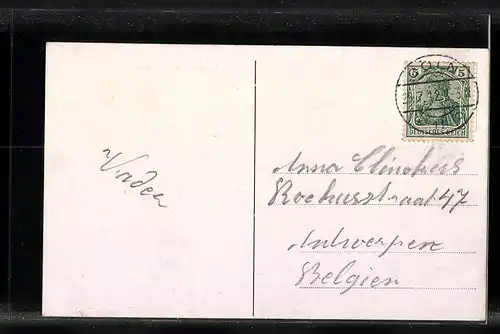 5 5
DEUTSCHES REICH
Vader
Anna Clinckers
Rochusstraat 47
Antwerpen
Belgien